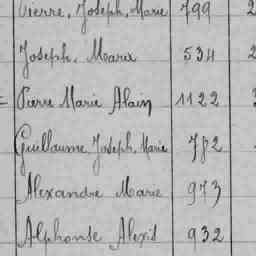 Pierre, Joseph, Marie 799 2
Joseph, Marie 534 2
= Pierre Marie Alain 1122
Guillaume Joseph, Marie 782
Alexandre Marie 973
Alphonse Alexis 932